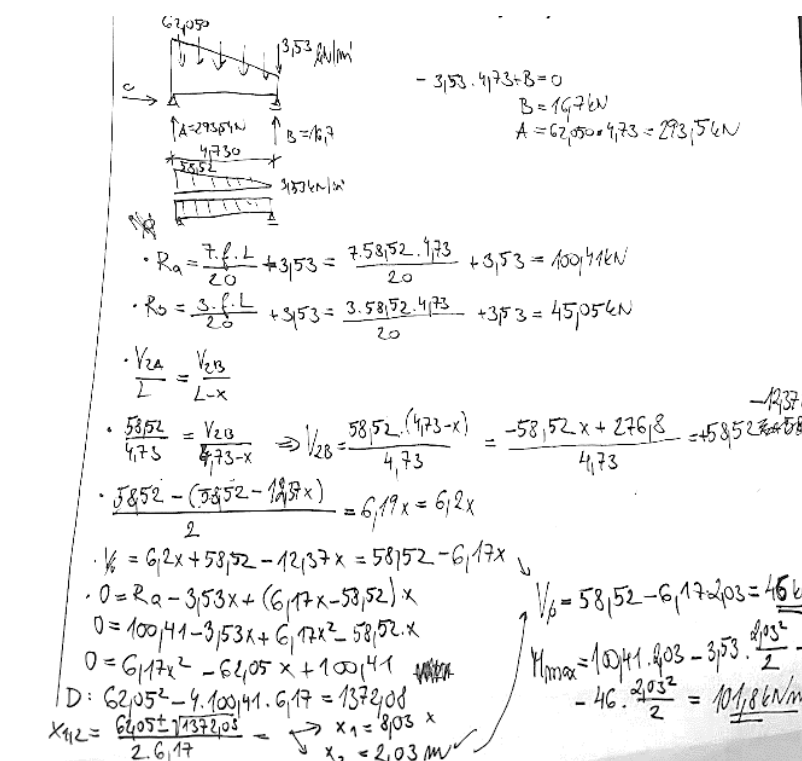 62,050
3,53 kN/m'
- 3,53 . 4,73 + B = 0
B = 16,7 kN
A = 62,050 . 4,73 = 293,5 kN
A = 293,5 kN
B = 16,7
4,730
58,52
3,53 kN/m'
· Ra = 7.f.L/20 + 3,53 = 7.58,52.4,73/20 + 3,53 = 100,41 kN
· Rb = 3.f.L/20 + 3,53 = 3.58,52.4,73/20 + 3,53 = 45,05 kN
· V2A/L = V2B/L-x
· 58,52/4,73 = V2B/4,73-x => V2B = 58,52.(4,73-x)/4,73 = -58,52x + 276,8/4,73 = +58,52
-12,37
· 58,52 - (58,52 - 12,37x)/2 = 6,19x = 6,2x
· V = 6,2x + 58,52 - 12,37x = 58,52 - 6,17x
· 0 = Ra - 3,53x + (6,17x - 58,52).x
0 = 100,41 - 3,53x + 6,17x² - 58,52.x
0 = 6,17x² - 62,05x + 100,41
D: 62,05² - 4.100,41.6,17 = 1372,08
x1,2 = 62,05 ± √1372,08/2.6,17 =
x1 = 8,03 x
x2 = 2,03 m ✓
= 58,52 - 6,17.2,03 = 46
Mmax = 100,41.2,03 - 3,53.2,03²/2 -
- 46.2,03²/2 = 101,8 kNm